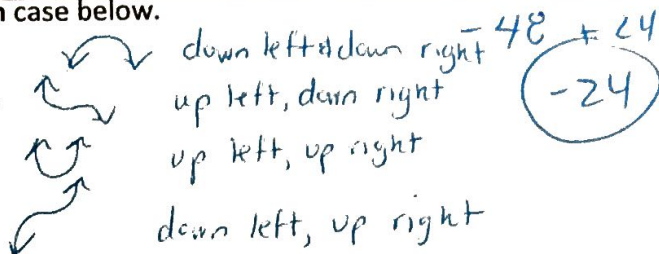 n case below.
down left & down right -48 + 24
up left, down right -24
up left, up right
down left, up right